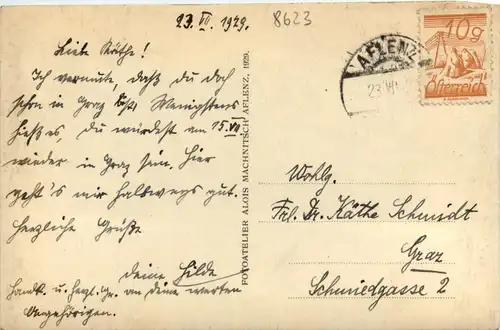 23. VII. 1929.
8623
Liebe Käthe!
Ich vermute, daß du doch
schon in Graz bist. Wenigstens
hieß es, du würdest am 15. VII.
wieder in Graz sein. Hier
geht's mir halbwegs gut.
Herzliche Grüße
Deine Hilde
Handk. u. herzl. Gr. an deine werten
Angehörigen.
FOTOATELIER ALOIS MACHNITSCH AFLENZ, 1929.
AFLENZ
23.VII
10g
Österreich
Wohlg.
Frl. Dr. Käthe Schmidt
Graz
Schmiedgasse 2